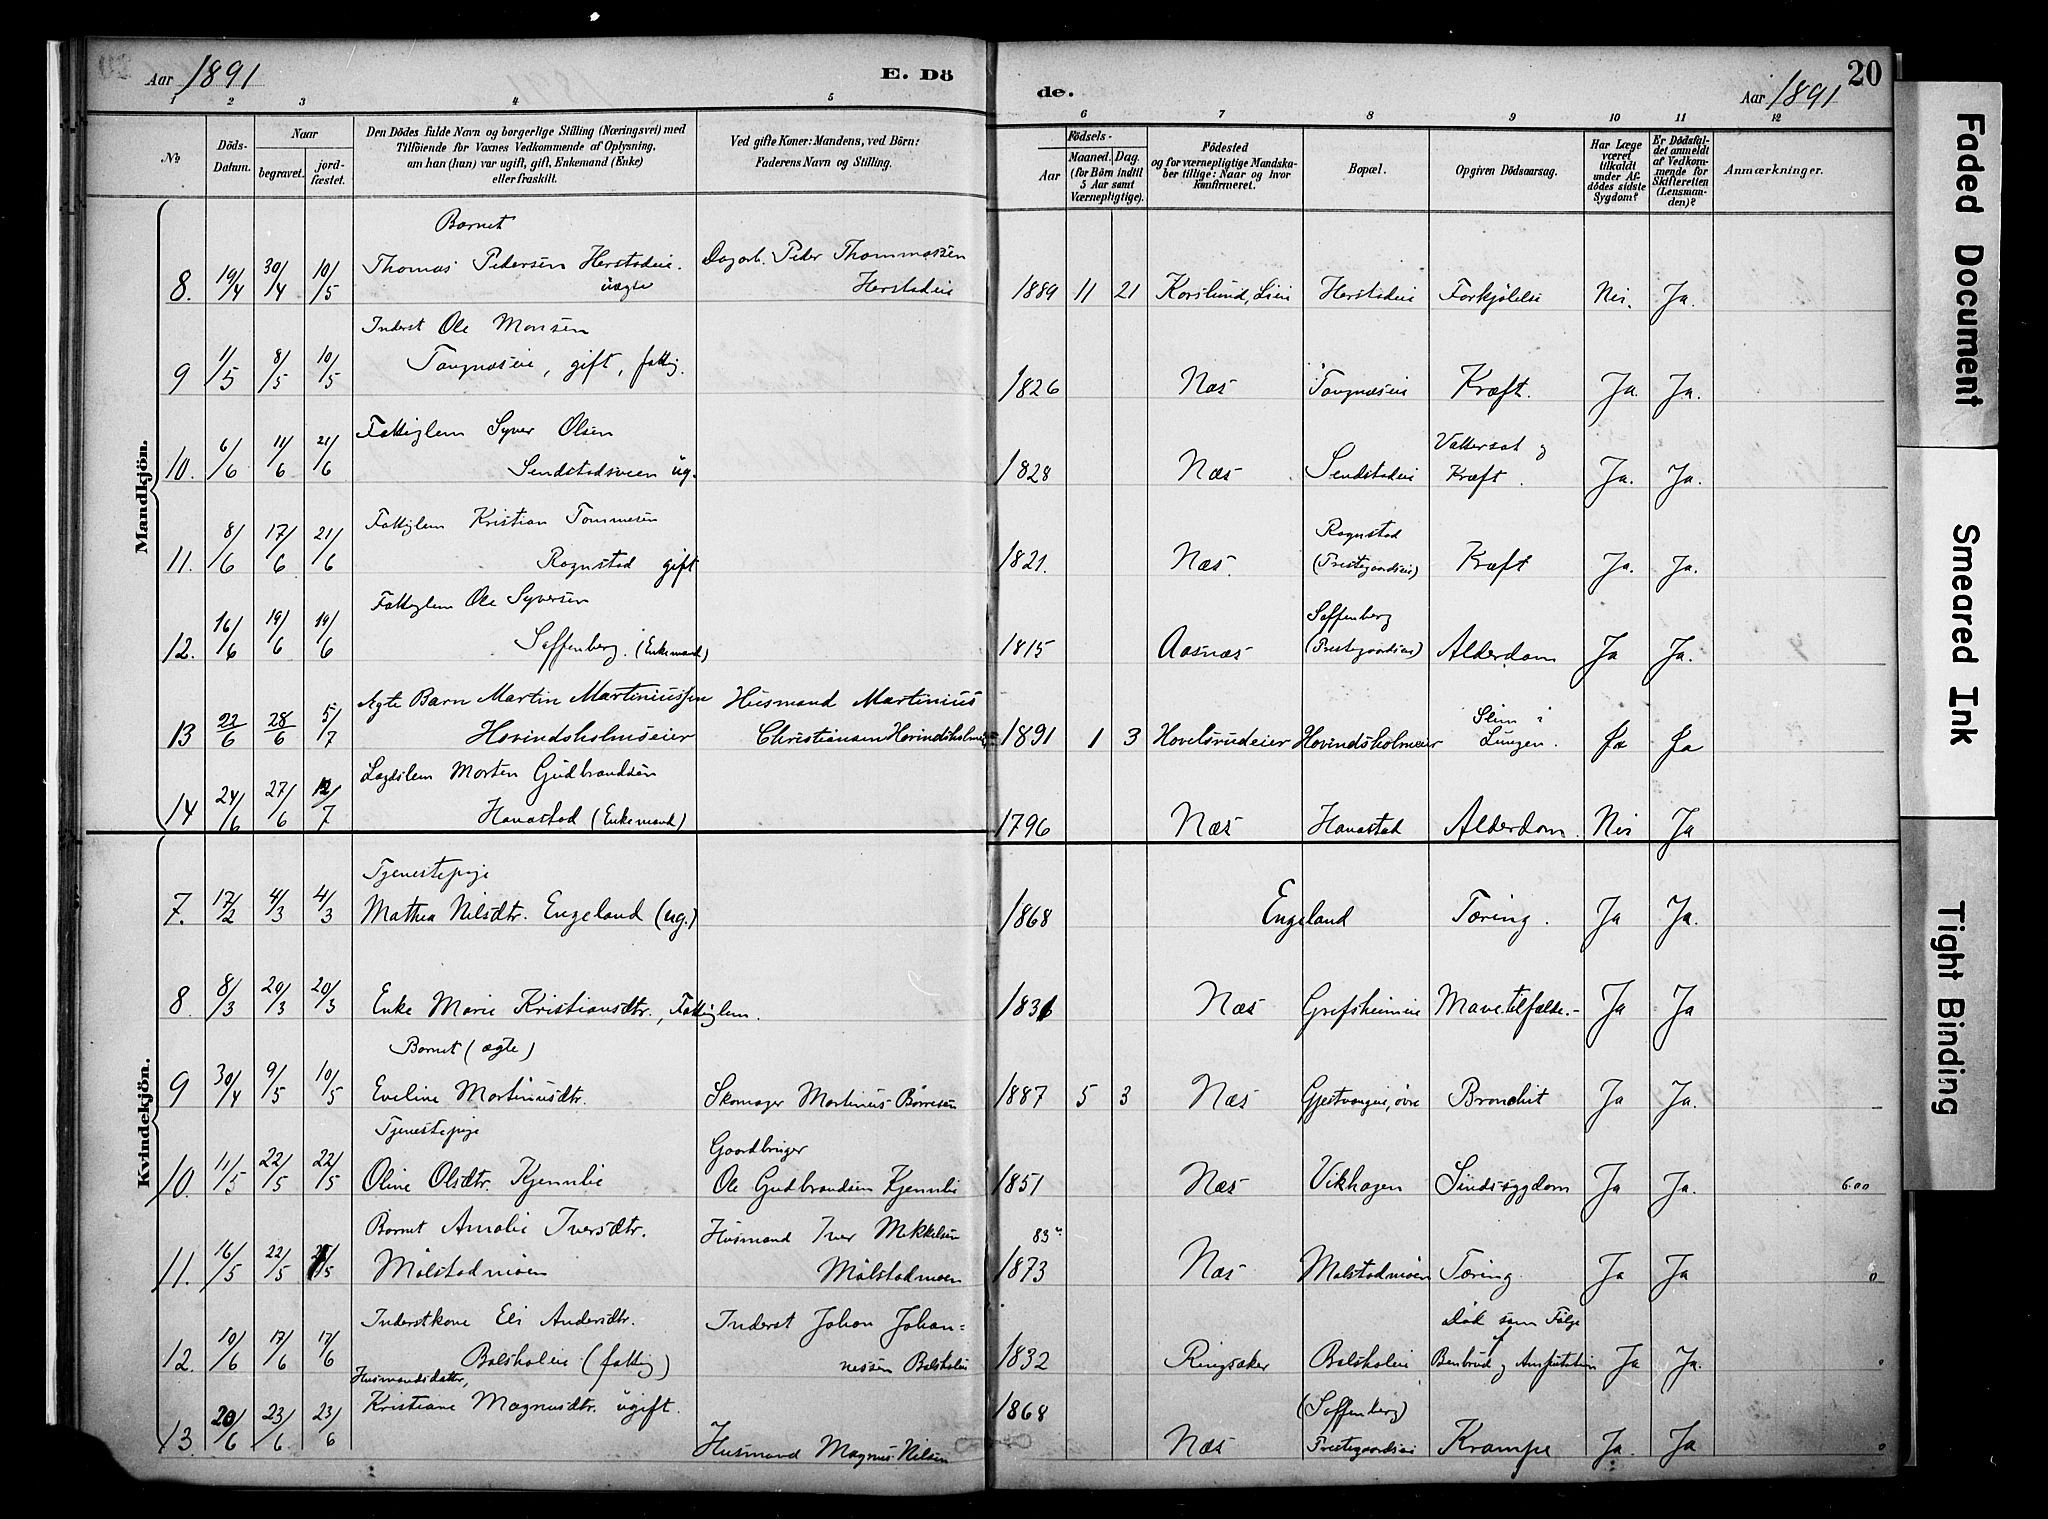 Aar 1891
E. Dö
de.
Aar 1891
20
1 2 3 4 5 6 7 8 9 10 11 12
No
Döds-Datum.
Naar
begravet.
jordfæstet.
Den Dödes fulde Navn og borgerlige Stilling (Næringsvei) med
Tilföiende for Voxnes Vedkommende af Oplysning,
om han (hun) var ugift, gift, Enkemand (Enke)
eller fraskilt.
Ved gifte Koner: Mandens, ved Börn:
Faderens Navn og Stilling.
Födsels-
Aar
Maaned. Dag.
(for Börn indtil
5 Aar samt
Værnepligtige).
Födested
og for værnepligtige Mandska-
ber tillige: Naar og hvor
konfirmeret.
Bopæl.
Opgiven Dödsaarsag.
Har Læge
været
tilkaldt
under Af-
dödes sidste
Sygdom?
Er Dödsfal-
det anmeldt
af Vedkom-
mende for
Skifteretten
(Lensman-
den)?
Anmærkninger.
Mandkjön.
Barnet
8. 19/4 30/4 10/5 Thomas Pedersen Herstadeie. uægte Dagarb. Peder Thommassen Herstadeie 1889 11 21 Korslund, Lier Herstadeie Forkjølelse Nei. Ja.
Inderst Ole Monsen
9 1/5 8/5 10/5 Tangnæseie, gift, fattig. 1826 Næs Tangnæseie Kræft. Ja. Ja.
Fattiglem Syver Olsen
10. 6/6 11/6 21/6 Sendstadsveen ug. 1828 Næs Sendstadeie Vattersot og Kræft. Ja. Ja.
Fattiglem Kristian Tommesen
11. 8/6 17/6 21/6 Rognstad gift 1821. Næs. Rognstad (Prestegaardseie) Kræft Ja. Ja.
Fattiglem Ole Syversen
12. 16/6 19/6 19/6 Soffenberg. (Enkemand) 1815 Aasnæs Soffenberg (Prestegaardseie) Alderdom Ja Ja.
Ægte Barn Martin Martiniussen Husmand Martinius
13 22/6 28/6 5/7 Hovindsholmseier Christiansen Hovindsholmeier 1891 1 3 Hovelsrudeier Hovindsholmeier Slim i Lungen. Ja Ja
Lægdslem Morten Gudbrandsen
14 24/6 27/6 12/7 Hanastad (Enkemand) 1796 Næs Hanastad Alderdom. Nei Ja
Kvindekjön.
Tjenestepige
7. 17/2 4/3 4/3 Mathea Nilsdtr. Engeland (ug.) 1868 Engeland Tæring. Ja Ja.
8. 8/3 20/3 20/3 Enke Marie Kristiansdtr., Fattiglem. 1831 Næs Grefsheimeie Mavetilfælde.- Ja Ja
Barnet (ægte)
9 30/4 9/5 10/5 Eveline Martinusdtr. Skomager Martinus Børresen 1887 5 3 Næs Gjestvangeie, øvre Bronchit Ja Ja.
Tjenestepige Gaardbruger
10. 11/5 22/5 22/5 Oline Olsdtr. Kjennlie Ole Gudbrandsen Kjennlie 1851 Næs Vikhagen Sindssygdom Ja Ja. 6.00
Barnet Amalie Iversdtr. Husmand Iver Mikkelsen 83
11. 16/5 22/5 Målstadmoen Målstadmoen 1873 Næs Målstadmoen Tæring. Ja Ja 0
Inderstkone Eli Andersdtr. Inderst Johan Johan=
12. 10/6 17/6 17/6 Balsholeie (fattig) nessen Balsholeie 1832 Ringsaker Balsholeie Død som Følge af Benbrud og Amputation Ja Ja. 0
Husmandsdatter,
13. 20/6 23/6 23/6 Kristiane Magnusdtr. ugift. Husmand Magnus Nilsen 1868 Næs (Soffenberg) Prestegaardseie Krampe Ja. Ja 0
Faded Document
Smeared Ink
Tight Binding